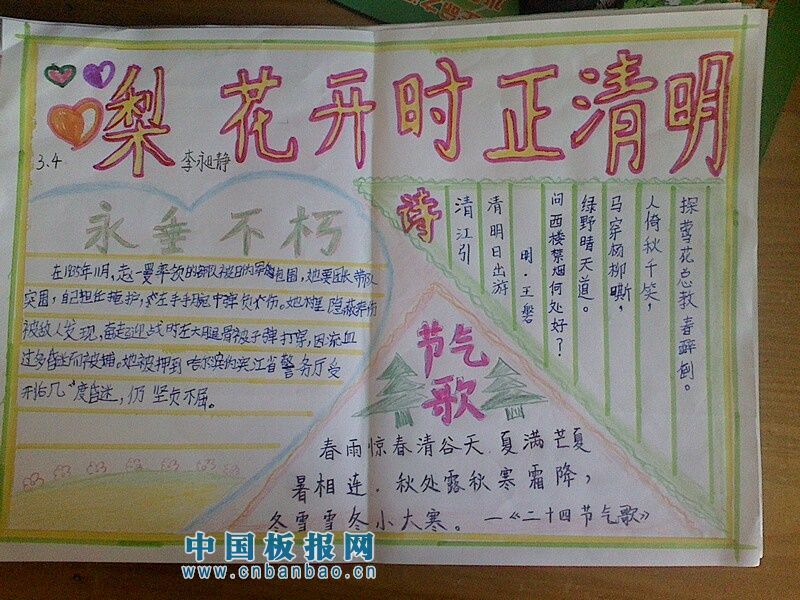 梨花开时正清明
3.4
李昶静
永垂不朽
在1935年11月，赵一曼率领的部队被日伪军包围，她要团长带队
突围，自己担任掩护，左手手腕中弹负伤。她在隐蔽养伤
被敌人发现，奋起迎战时左大腿骨被子弹打穿，因流血
过多昏迷而被捕。她被押到哈尔滨伪滨江省警务厅受
刑后几度昏迷，仍坚贞不屈。
诗
清江引
清明日出游
明·王磐
问西楼禁烟何处好？
绿野晴天道。
马穿杨柳嘶，
人倚秋千笑，
探莺花总教春醉倒。
节气
歌
春雨惊春清谷天，夏满芒夏
暑相连，秋处露秋寒霜降，
冬雪雪冬小大寒。—《二十四节气歌》
中国板报网
www.cnbanbao.cn